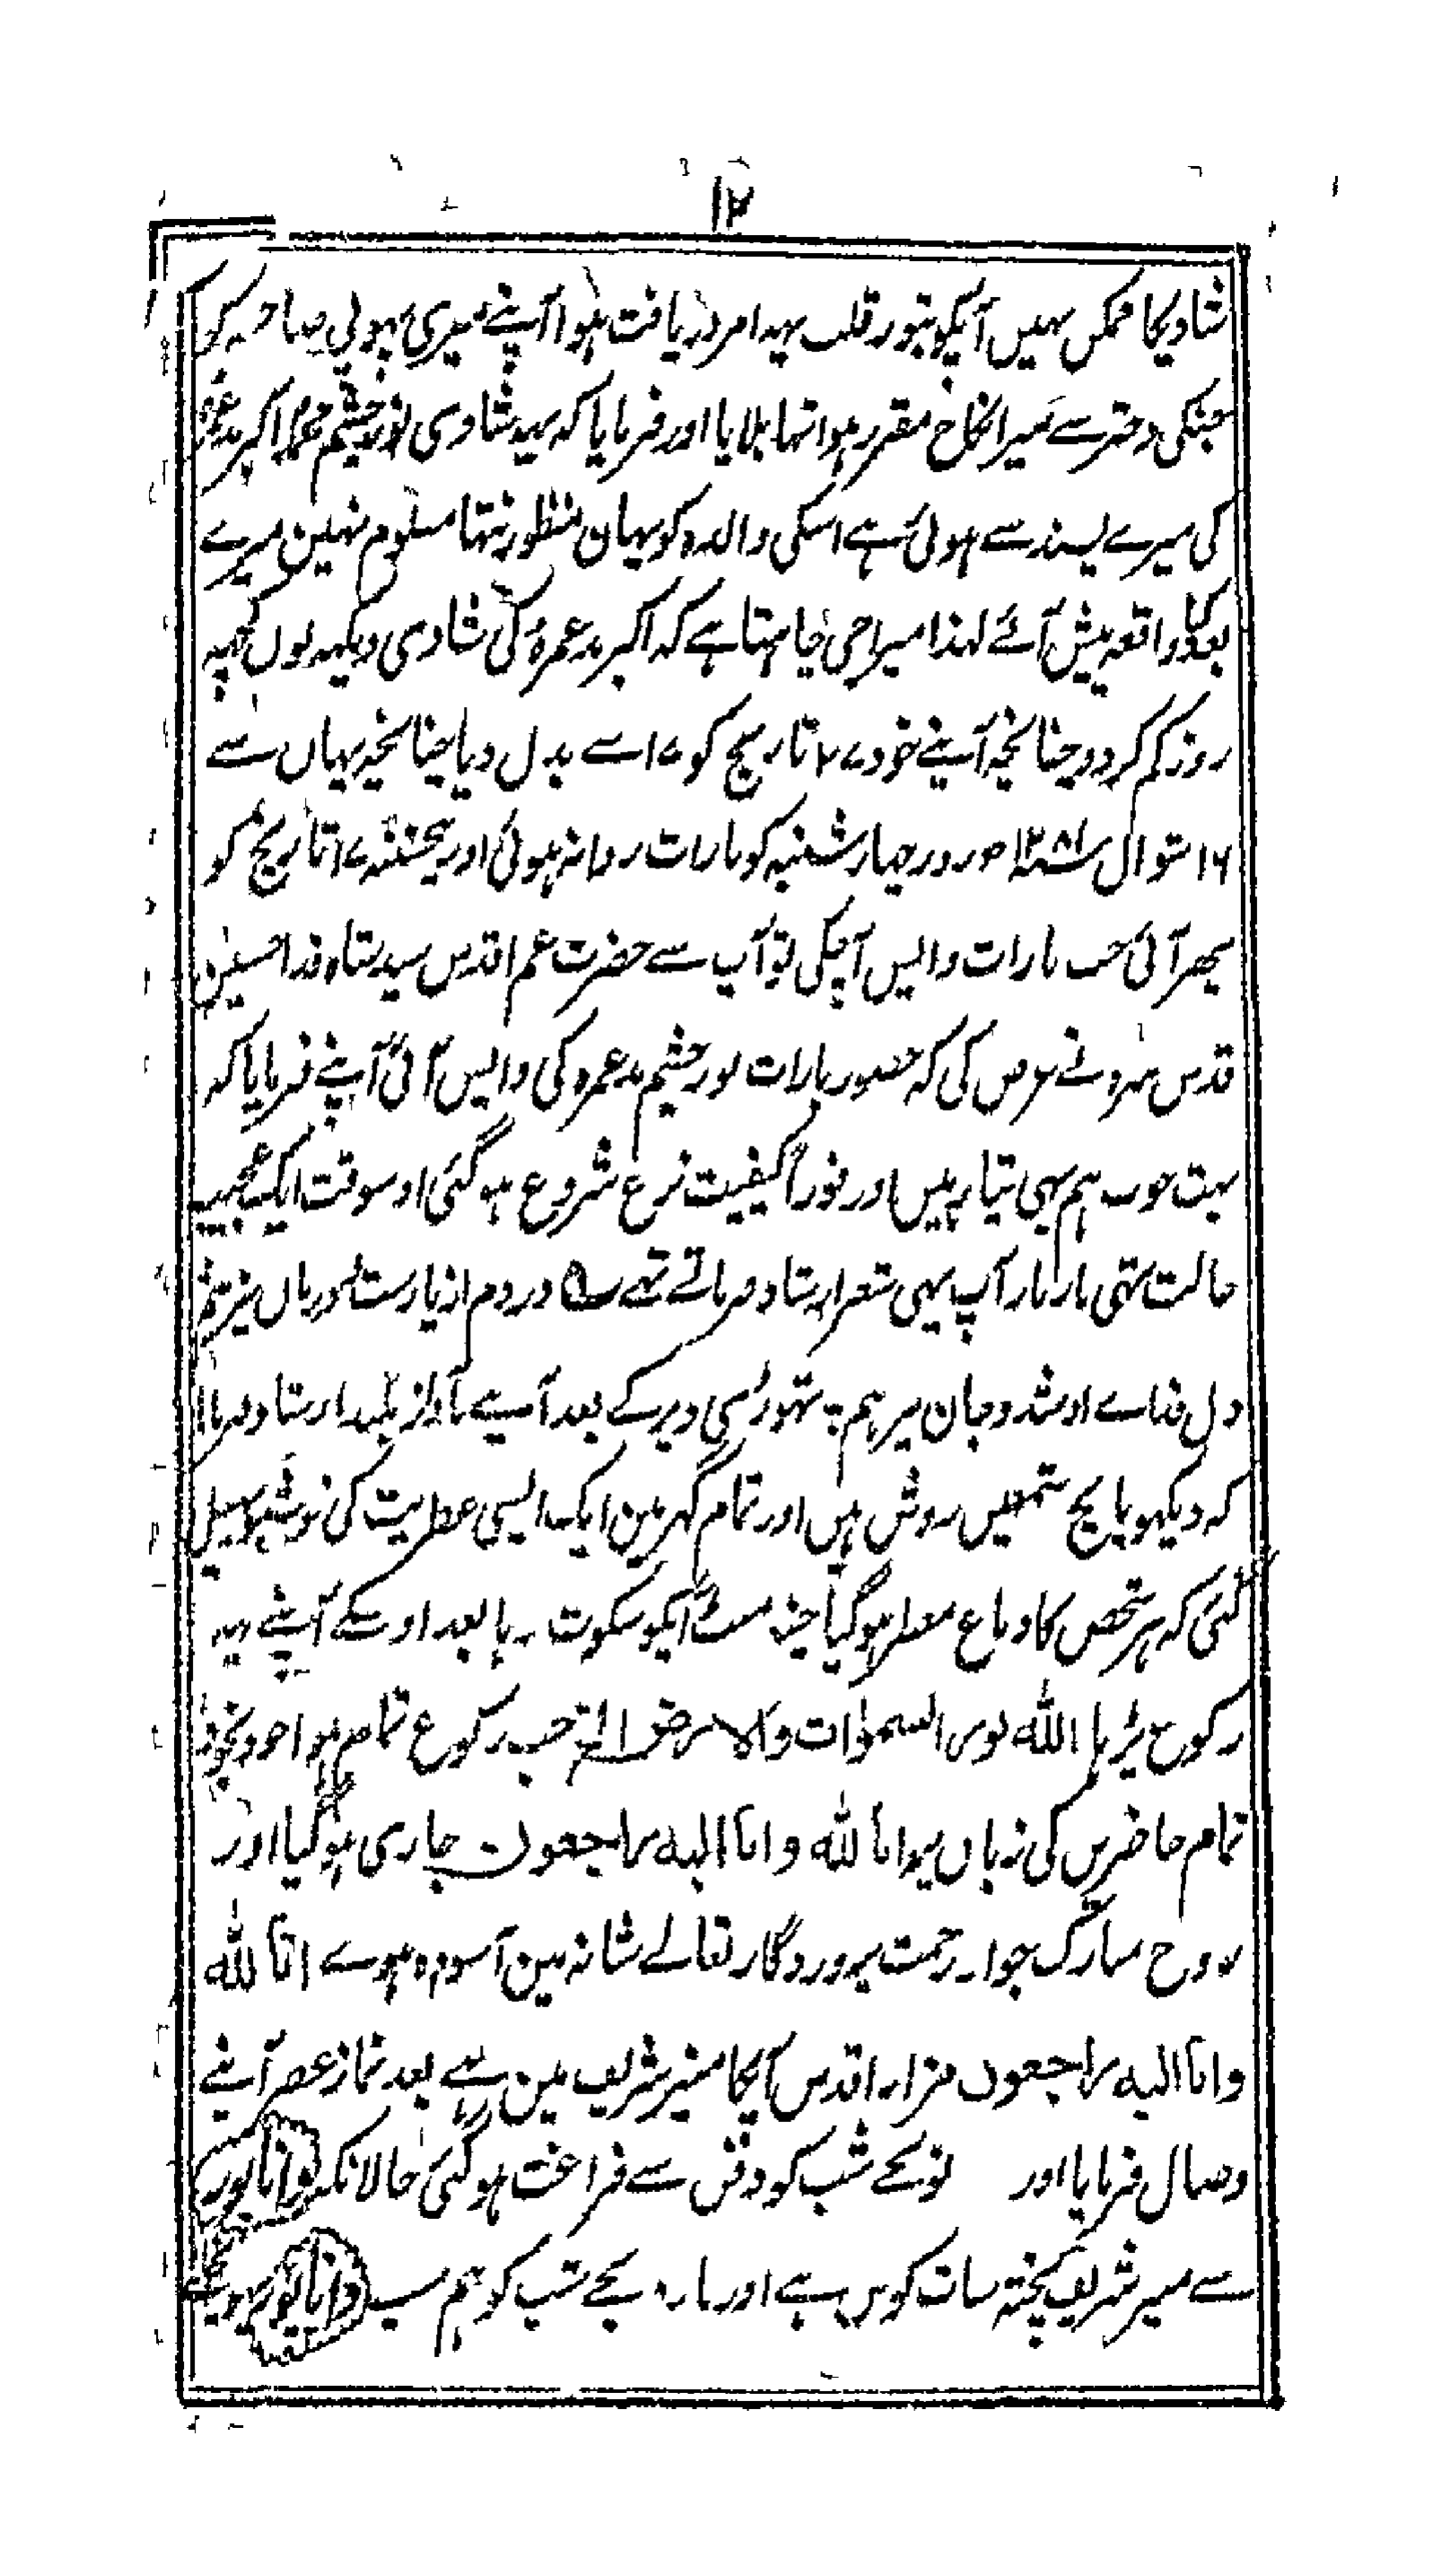 ۱۲
شادیکا ممکن نہیں آپکو بنور قلب یہہ امر دریافت ہوا آپنے میری پہوپی صاحبہ کو
جنکی دختر سے میرا نکاح مقرر ہوا تہا بلایا اور فرمایا کہ یہہ شادی نورچشم محمد اکبر مدعمرہ
کی میرے پسند سے ہوئی ہے اسکی والدہ کو یہان منظور نتہا معلوم نہین میرے
بعد کیا واقعہ پیش آئے لہذا میرا جی چاہتا ہے کہ اکبر مدعمرہ کی شادی دیکہہ لوں کچہہ
روز کم کر دو چنانچہ آپنے خود ۲۷ تاریخ کو ۱۷ سے بدل دیا چنانچہ یہاں سے
۱۶ شوال سنہ ۱۲۸۱ھ روز چہار شنبہ کو بارات روانہ ہوئی اور پنجشنبہ ۱۷ تاریخ کو
پھر آئی جب بارات واپس آچکی تو آپ سے حضرت عم اقدس سید شاہ فدا حسین
قدس سرہ نے عرض کی کہ حضور بارات نورچشم مدعمرہ کی واپس آئی آپنے فرمایا کہ
بہت خوب ہم بہی تیار ہیں اور فوراً کیفیت نزع شروع ہو گئی اوسوقت ایک عجیب
حالت تہی بار بار آپ یہی شعر ارشاد فرماتے تہے ؎ دردم از یارست و درماں نیز ہم
دل فداے او شد و جان نیز ہم ؞ تہوڑی دیر کے بعد آپنے بآواز بلند ارشاد فرمایا
کہ دیکہو پانچ شمعیں روشن ہیں اور تمام گہر مین ایک ایسی عطریت کی خوشبو پہیل
گئی کہ ہر شخص کا دماغ معطر ہو گیا چند منٹ آپکو سکوت رہا بعد اوسکے آپنے یہہ
رکوع پڑہا الله نور السموات والارض الخ جب رکوع تمام ہوا خود بخود
تمام حاضرین کی زباں پر انا لله وانا الیه راجعون جاری ہو گیا اور
روح مبارک جوار رحمت پروردگار تعالے شانہ مین آسودہ ہوے انا لله
وانا الیه راجعون مزار اقدس آپکا منیر شریف مین ہے بعد نماز عصر آپنے
وصال فرمایا اور نو بجے شب کو دفن سے فراغت ہو گئی حالانکہ دانا پور
سے منیر شریف پختہ سات کوس ہے اور بارہ بجے شب کو ہم سب دانا پور پہونچے